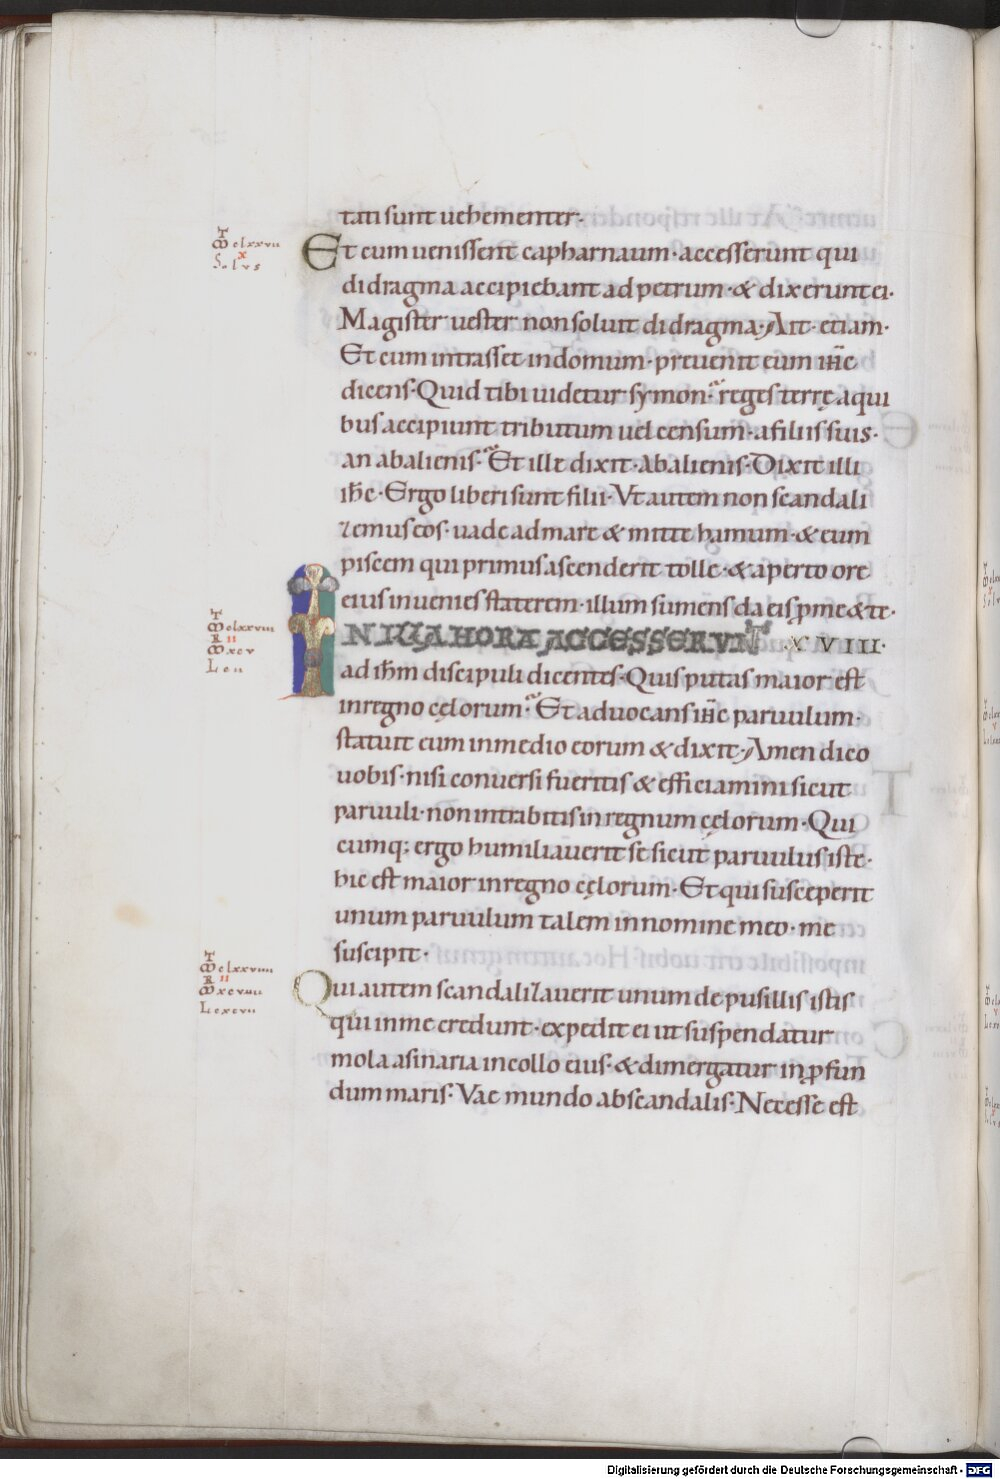 tati sunt uehementer·
Et cum uenissent capharnaum· accesserunt qui
didragma accipiebant ad petrum· & dixerunt ei·
Magister uester non soluit didragma· Ait· etiam·
Et cum intrasset in domum· preuenit eum ihc
dicens· Quid tibi uidetur symon· reges terrę a qui
bus accipiunt tributum uel censum· a filiis suis·
an ab alienis· Et ille dixit· Ab alienis· Dixit illi
ihc· Ergo liberi sunt filii· Vt autem non scandali
zemus eos· uade ad mare & mitte hamum· & eum
piscem qui primus ascenderit tolle· & aperto ore
eius inuenies staterem· illum sumens da eis p me & te·
IN ILLA HORA ACCESSERVNT XVIII·
ad ihm discipuli dicentes· Quis putas maior est
in regno cęlorum· Et aduocans ihc paruulum·
statuit eum in medio eorum & dixit· Amen dico
uobis· nisi conuersi fueritis & efficiamini sicut
paruuli· non intrabitis in regnum cęlorum· Qui
cumq; ergo humiliauerit se sicut paruulus iste·
hic est maior in regno cęlorum· Et qui susceperit
unum paruulum talem in nomine meo· me
suscipit·
Qui autem scandalizauerit unum de pusillis istis
qui in me credunt· expedit ei ut suspendatur
mola asinaria in collo eius· & dimergatur in pfun
dum maris· Vae mundo ab scandalis· Necesse est
clxxvii
x
Solus
clxxviii
R II
xcv
Lcii
clxxviiii
R II
xcviiii
Lcxcvii
Digitalisierung gefördert durch die Deutsche Forschungsgemeinschaft - DFG